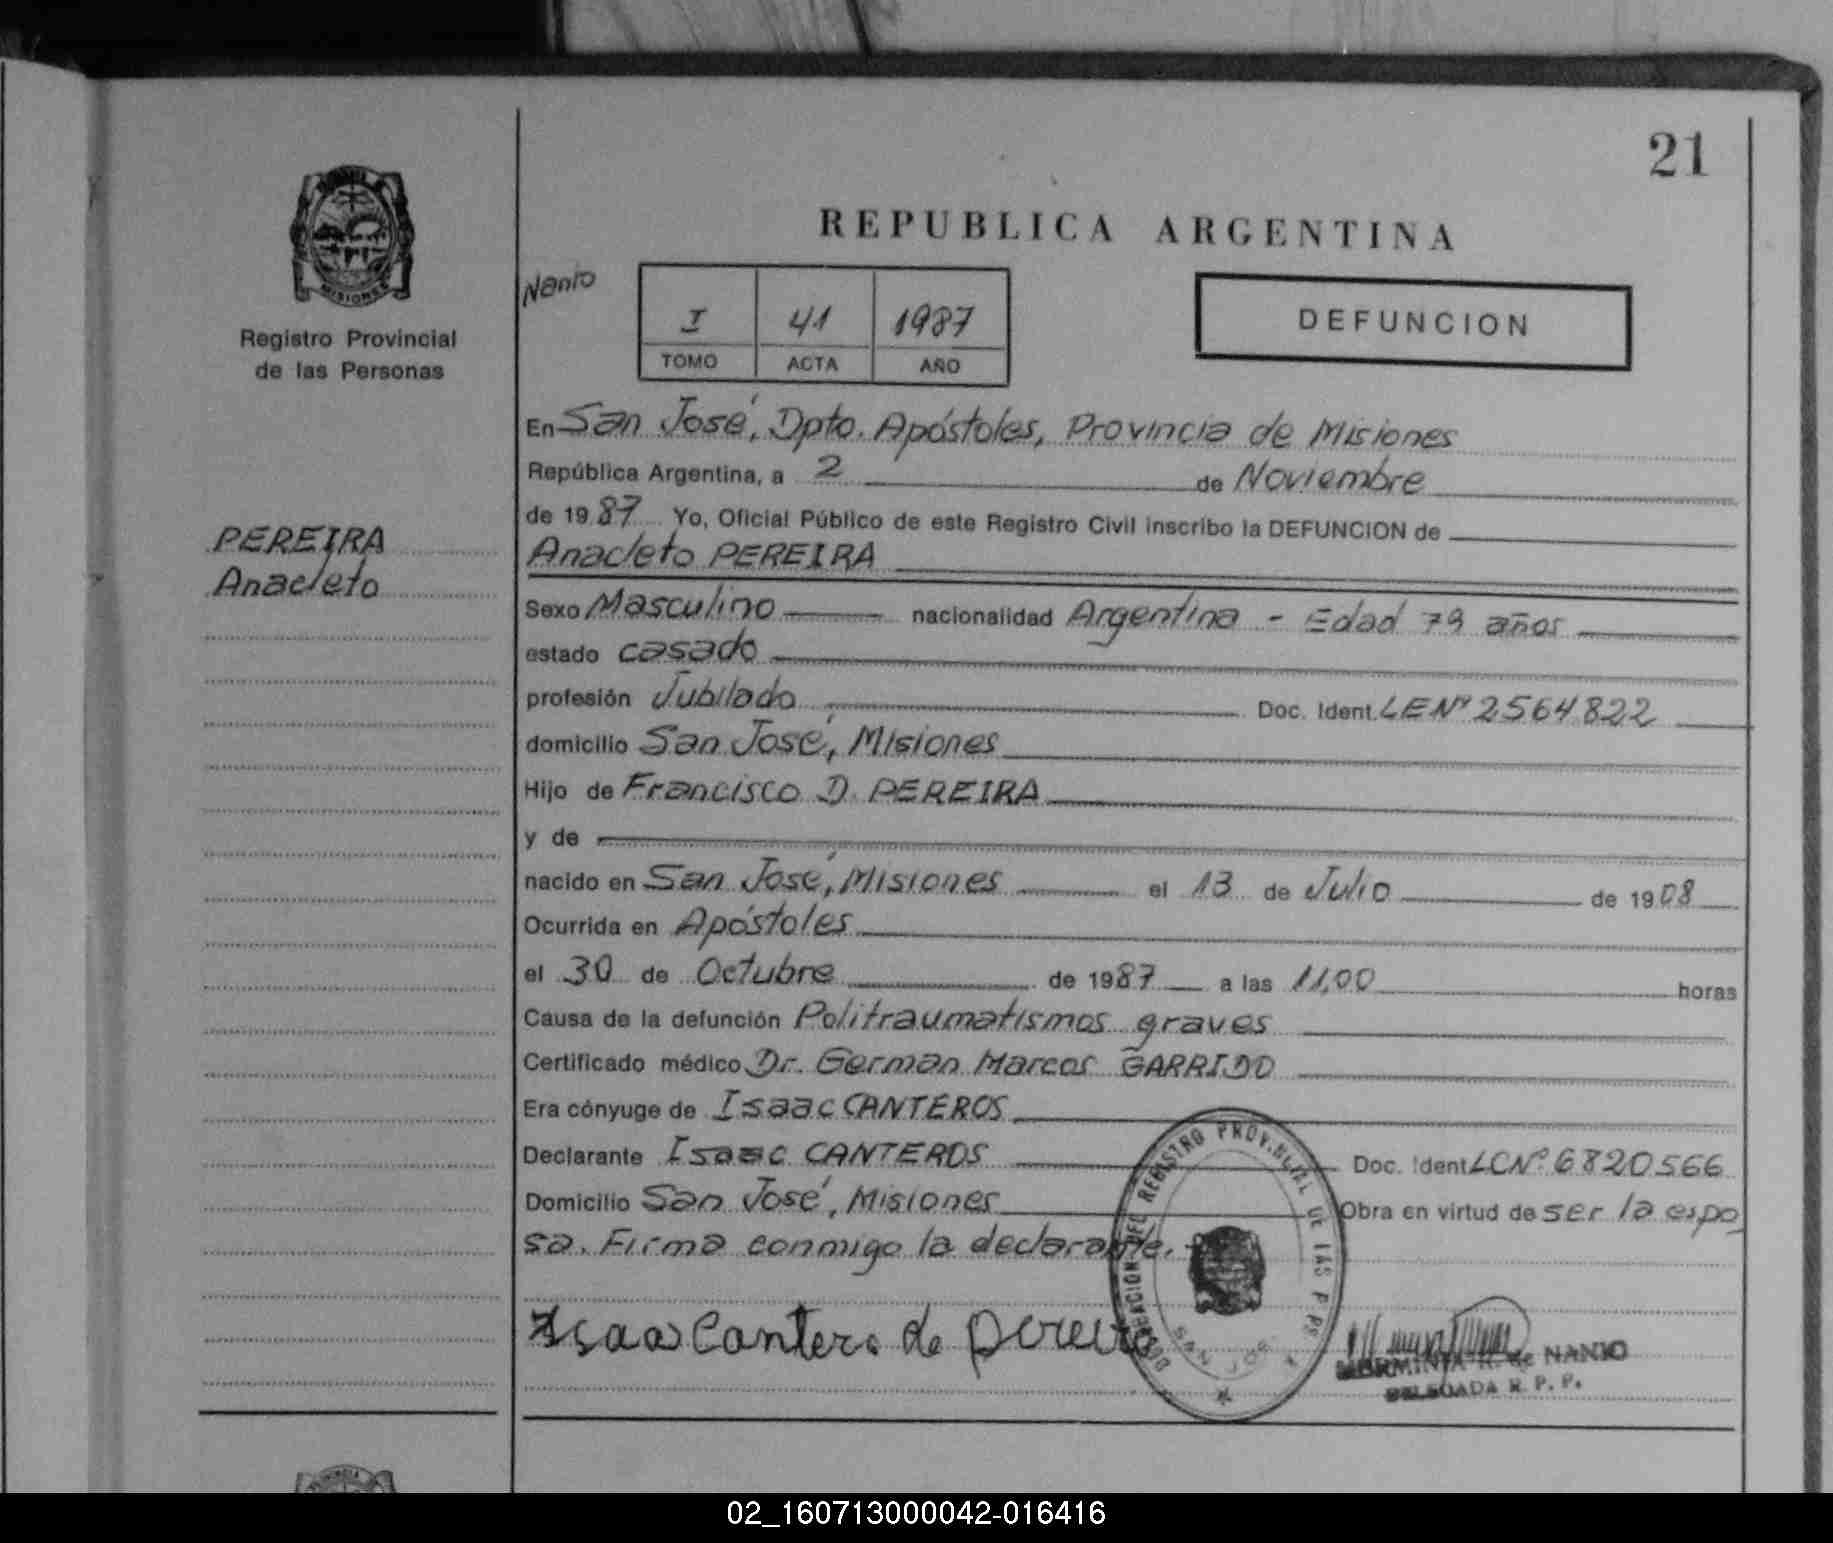 21
REPUBLICA ARGENTINA
MISIONES
Registro Provincial
de las Personas
Nanio
I 41 1987
TOMO ACTA AÑO
DEFUNCION
PEREIRA
Anacleto
En San José, Dpto. Apóstoles, Provincia de Misiones
República Argentina, a 2 de Noviembre
de 1987 Yo, Oficial Público de este Registro Civil inscribo la DEFUNCION de
Anacleto PEREIRA
Sexo Masculino nacionalidad Argentina - Edad 79 años
estado casado
profesión Jubilado Doc. Ident. LE Nº 2564822
domicilio San José, Misiones
Hijo de Francisco D. PEREIRA
y de
nacido en San José, Misiones el 13 de Julio de 1908
Ocurrida en Apóstoles
el 30 de Octubre de 1987 a las 11,00 horas
Causa de la defunción Politraumatismos graves
Certificado médico Dr. German Marcos GARRIDO
Era cónyuge de Isaac CANTEROS
Declarante Isaac CANTEROS Doc. Ident LC Nº 6820566
Domicilio San José, Misiones Obra en virtud de ser la espo
sa. Firma conmigo la declarante.
Isaac Cantero de Pereira
DELEGACION DEL REGISTRO PROVINCIAL DE LAS P PS
SAN JOSE
HERMINIA R. de NANIO
DELEGADA R. P. P.
02_160713000042-016416